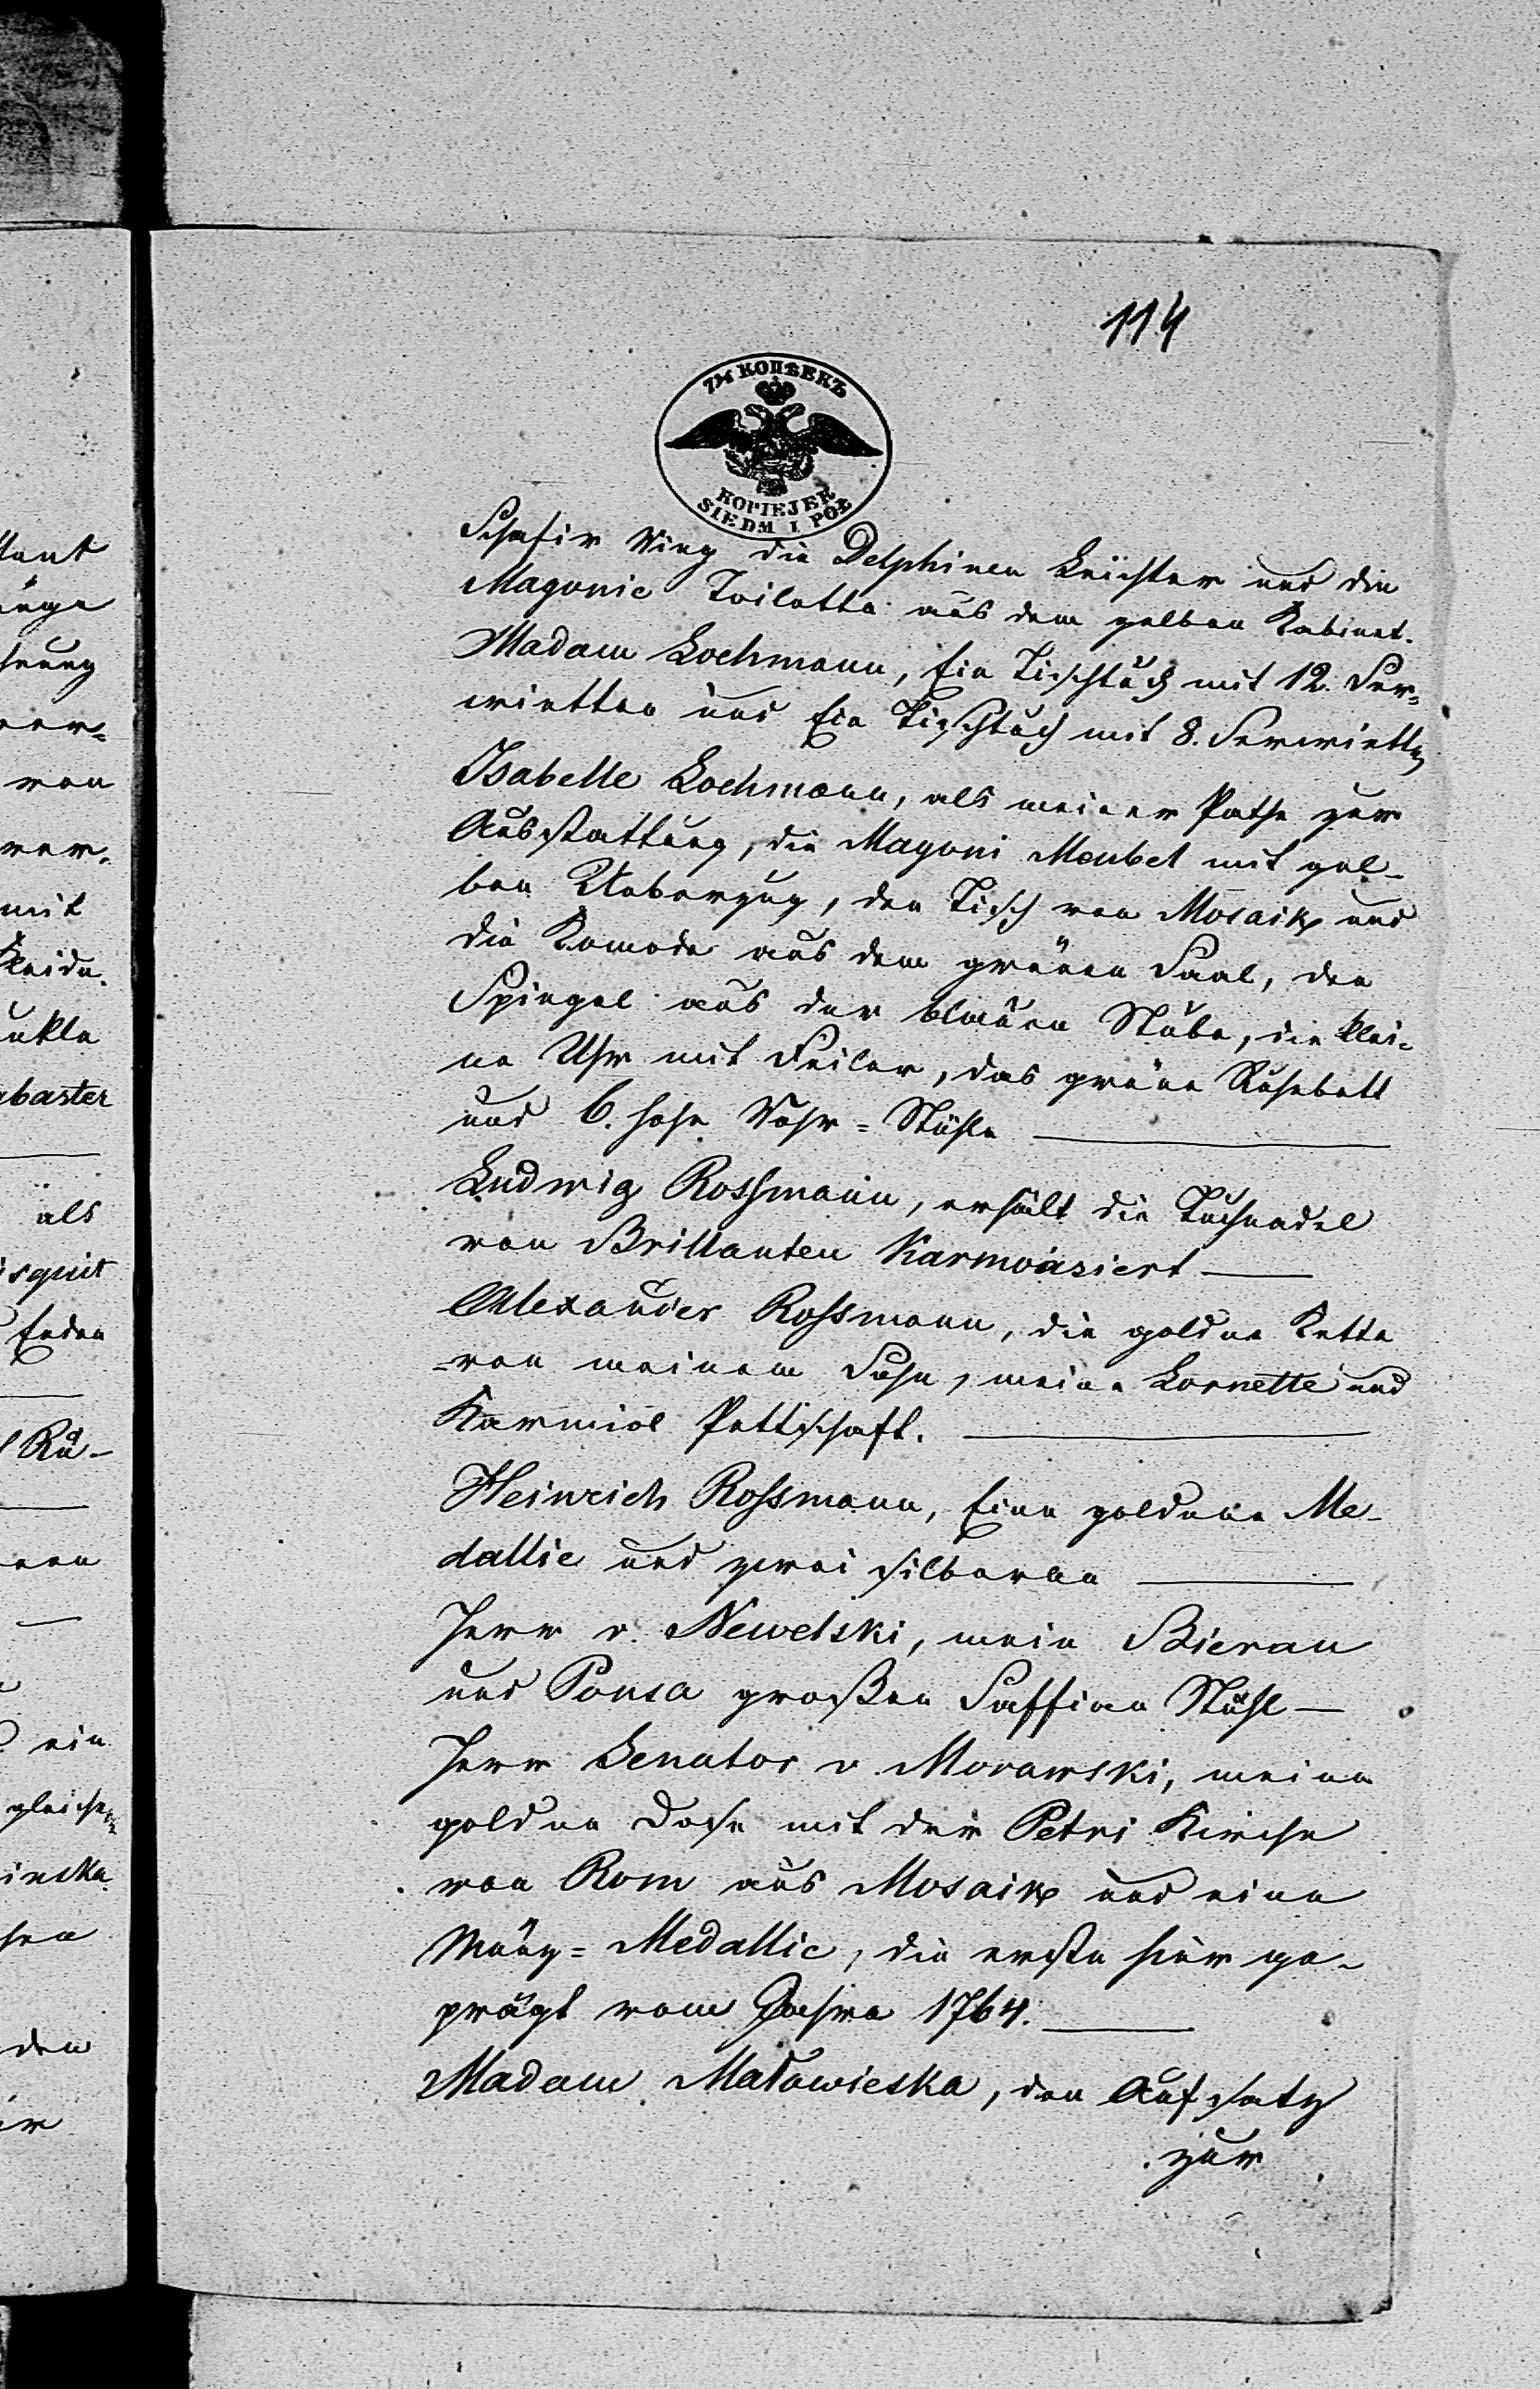 114
7½ КОПѢЕКЪ
KOPIEJEK
SIEDM I PÓŁ
Schafir Ring die Delphinen Leüchter und die
Magonie Toilette aus dem gelben Kabinet.
Madam Lochmann, Ein Tischtuch mit 12. Ser=
wietten und Ein Tischtuch mit 8. Serwietten
Isabelle Lochmann, als meiner Pathe zur
Ausstattung, die Magoni Meubel mit gel-
ben Ueberzug, den Tisch von Mosaik und
die Komode aus dem grünen Saal, den
Spiegel aus der blauen Stube, die klei-
ne Uhr mit Seiler, das grüne Ruhebett
und 6. hohe Rohr=Stühle
Ludwig Rossmann, erhält die Tuchnadel
von Brillanten Karmoasiert
Alexander Rossmann, die goldne Kette
von meinem Sohn, meine Lornette und
Karniol Pettschaft.
Heinrich Rossmann, Eine goldene Me-
dallie und zwei silberne
Herr v. Newelski, mein Bierau
und Ponsa großen Saffian Stuhl
Herr Senator v. Morawski, meine
goldne Dose mit der Petri Kirche
von Rom aus Mosaik und eine
Münz=Medallie, die erste hier ge-
prägt vom Jahre 1764.
Madam Malowieska, den Aufsatz
zur
abaster
als
isquit
Enden
Rü-
ein
den
mit
von